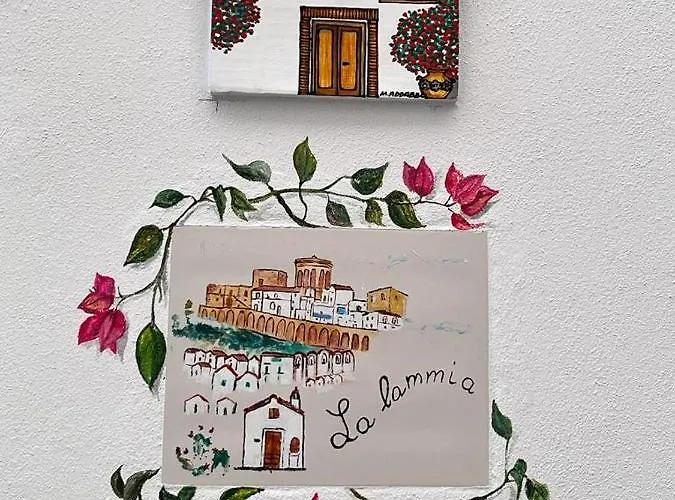 M. ADDABBO
La lammia